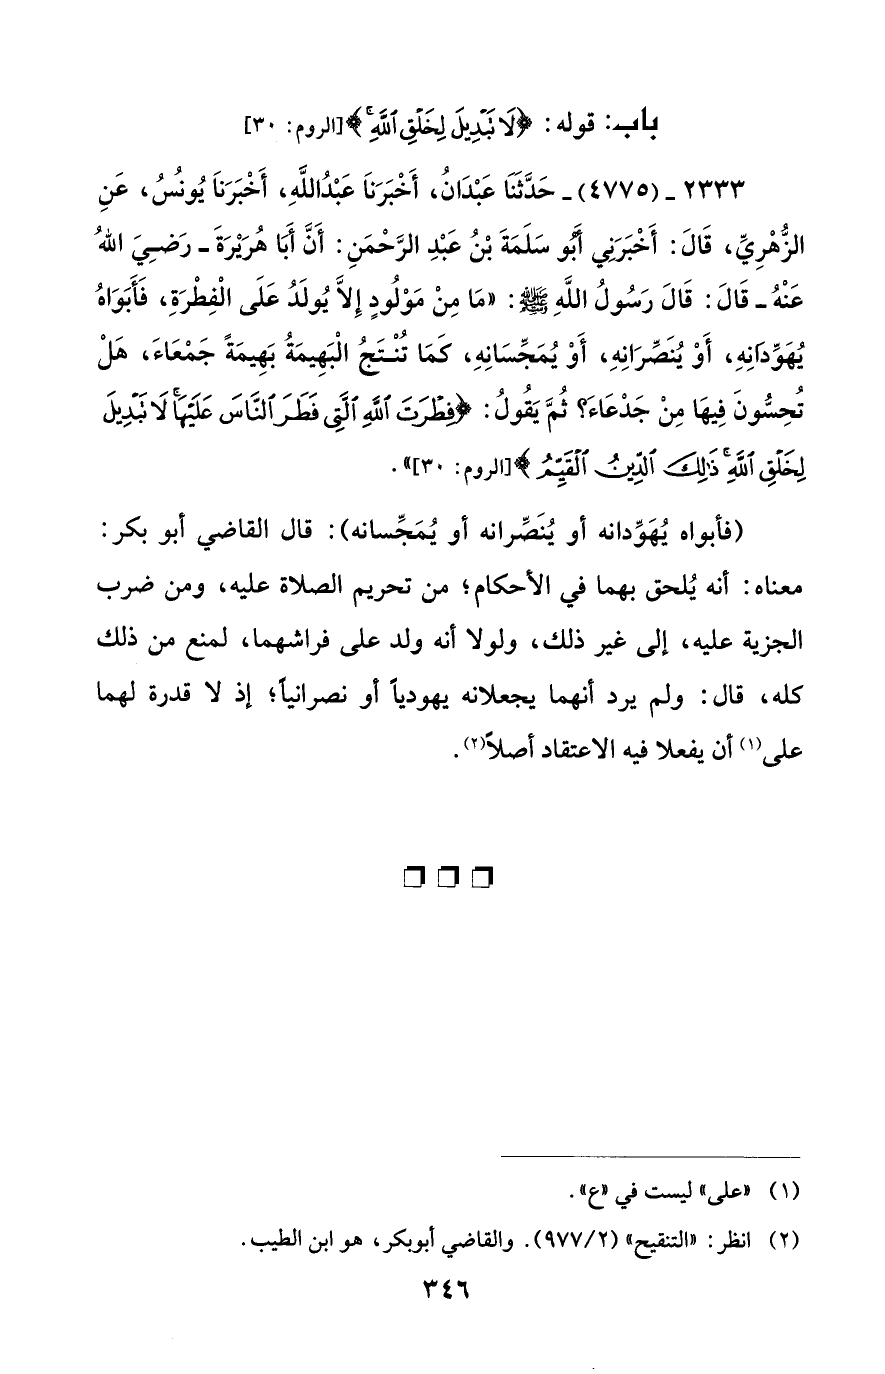 باب: قوله: ﴿لَا تَبْدِيلَ لِخَلْقِ ٱللَّهِۚ﴾ [الروم: ٣٠]
٢٣٣٣ ـ (٤٧٧٥) ـ حَدَّثَنَا عَبْدَانُ، أَخْبَرَنَا عَبْدُاللَّهِ، أَخْبَرَنَا يُونُسُ، عَنِ
الزُّهْرِيِّ، قَالَ: أَخْبَرَنِي أَبُو سَلَمَةَ بْنُ عَبْدِ الرَّحْمَنِ: أَنَّ أَبَا هُرَيْرَةَ ـ رَضِيَ اللهُ
عَنْهُ ـ قَالَ: قَالَ رَسُولُ اللَّهِ ﷺ: «مَا مِنْ مَوْلُودٍ إِلاَّ يُولَدُ عَلَى الْفِطْرَةِ، فَأَبَوَاهُ
يُهَوِّدَانِهِ، أَوْ يُنَصِّرَانِهِ، أَوْ يُمَجِّسَانِهِ، كَمَا تُنْتَجُ الْبَهِيمَةُ بَهِيمَةً جَمْعَاءَ، هَلْ
تُحِسُّونَ فِيهَا مِنْ جَدْعَاءَ؟ ثُمَّ يَقُولُ: ﴿فِطْرَتَ ٱللَّهِ ٱلَّتِي فَطَرَ ٱلنَّاسَ عَلَيْهَاۚ لَا تَبْدِيلَ
لِخَلْقِ ٱللَّهِۚ ذَٰلِكَ ٱلدِّينُ ٱلْقَيِّمُ﴾ [الروم: ٣٠]».
(فأبواه يُهَوِّدانه أو يُنَصِّرانه أو يُمَجِّسانه): قال القاضي أبو بكر:
معناه: أنه يُلحق بهما في الأحكام؛ من تحريم الصلاة عليه، ومن ضرب
الجزية عليه، إلى غير ذلك، ولولا أنه ولد على فراشهما، لمنع من ذلك
كله، قال: ولم يرد أنهما يجعلانه يهودياً أو نصرانياً؛ إذ لا قدرة لهما
على(١) أن يفعلا فيه الاعتقاد أصلاً(٢).
(١) «على» ليست في «ع».
(٢) انظر: «التنقيح» (٢/ ٩٧٧). والقاضي أبوبكر، هو ابن الطيب.
٣٤٦